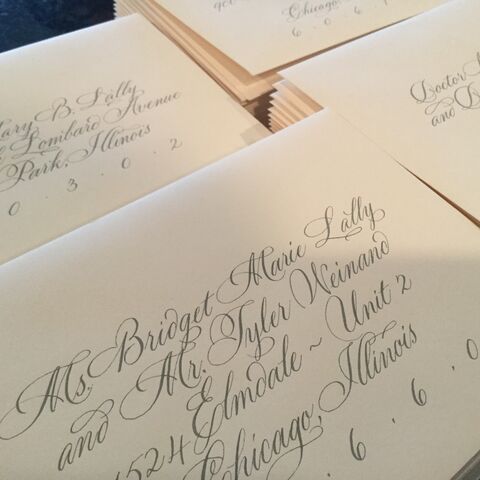 Chicago,
6 0 6
Doctor
and D
ary B. Lally
Lombard Avenue
Park, Illinois
0 3 0 2
Ms. Bridget Marie Lally
and Mr. Tyler Weinand
1524 Elmdale ~ Unit 2
Chicago, Illinois
6 . 6 . 0